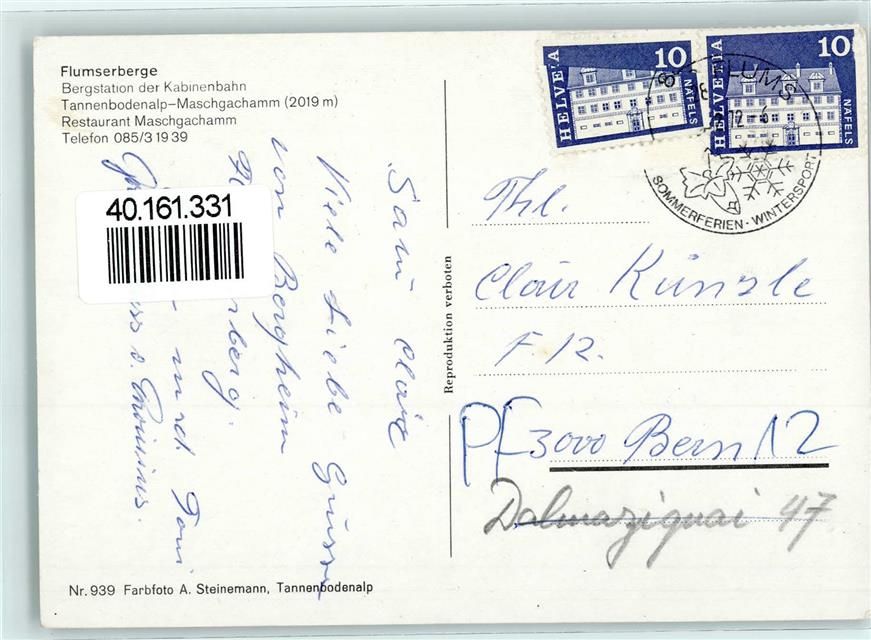 Flumserberge
Bergstation der Kabinenbahn
Tannenbodenalp–Maschgachamm (2019 m)
Restaurant Maschgachamm
Telefon 085/3 19 39
40.161.331
HELVETIA 10 NÄFELS
HELVETIA 10 NÄFELS
FLUMS
SOMMERFERIEN - WINTERSPORT
Clair
Viele Liebe Grüsse
vom Bergheim
und Toni
Reproduktion verboten
Clair Künzle
F 12.
PF 3000 Bern 12
Dalmaziquai 47
Nr. 939 Farbfoto A. Steinemann, Tannenbodenalp